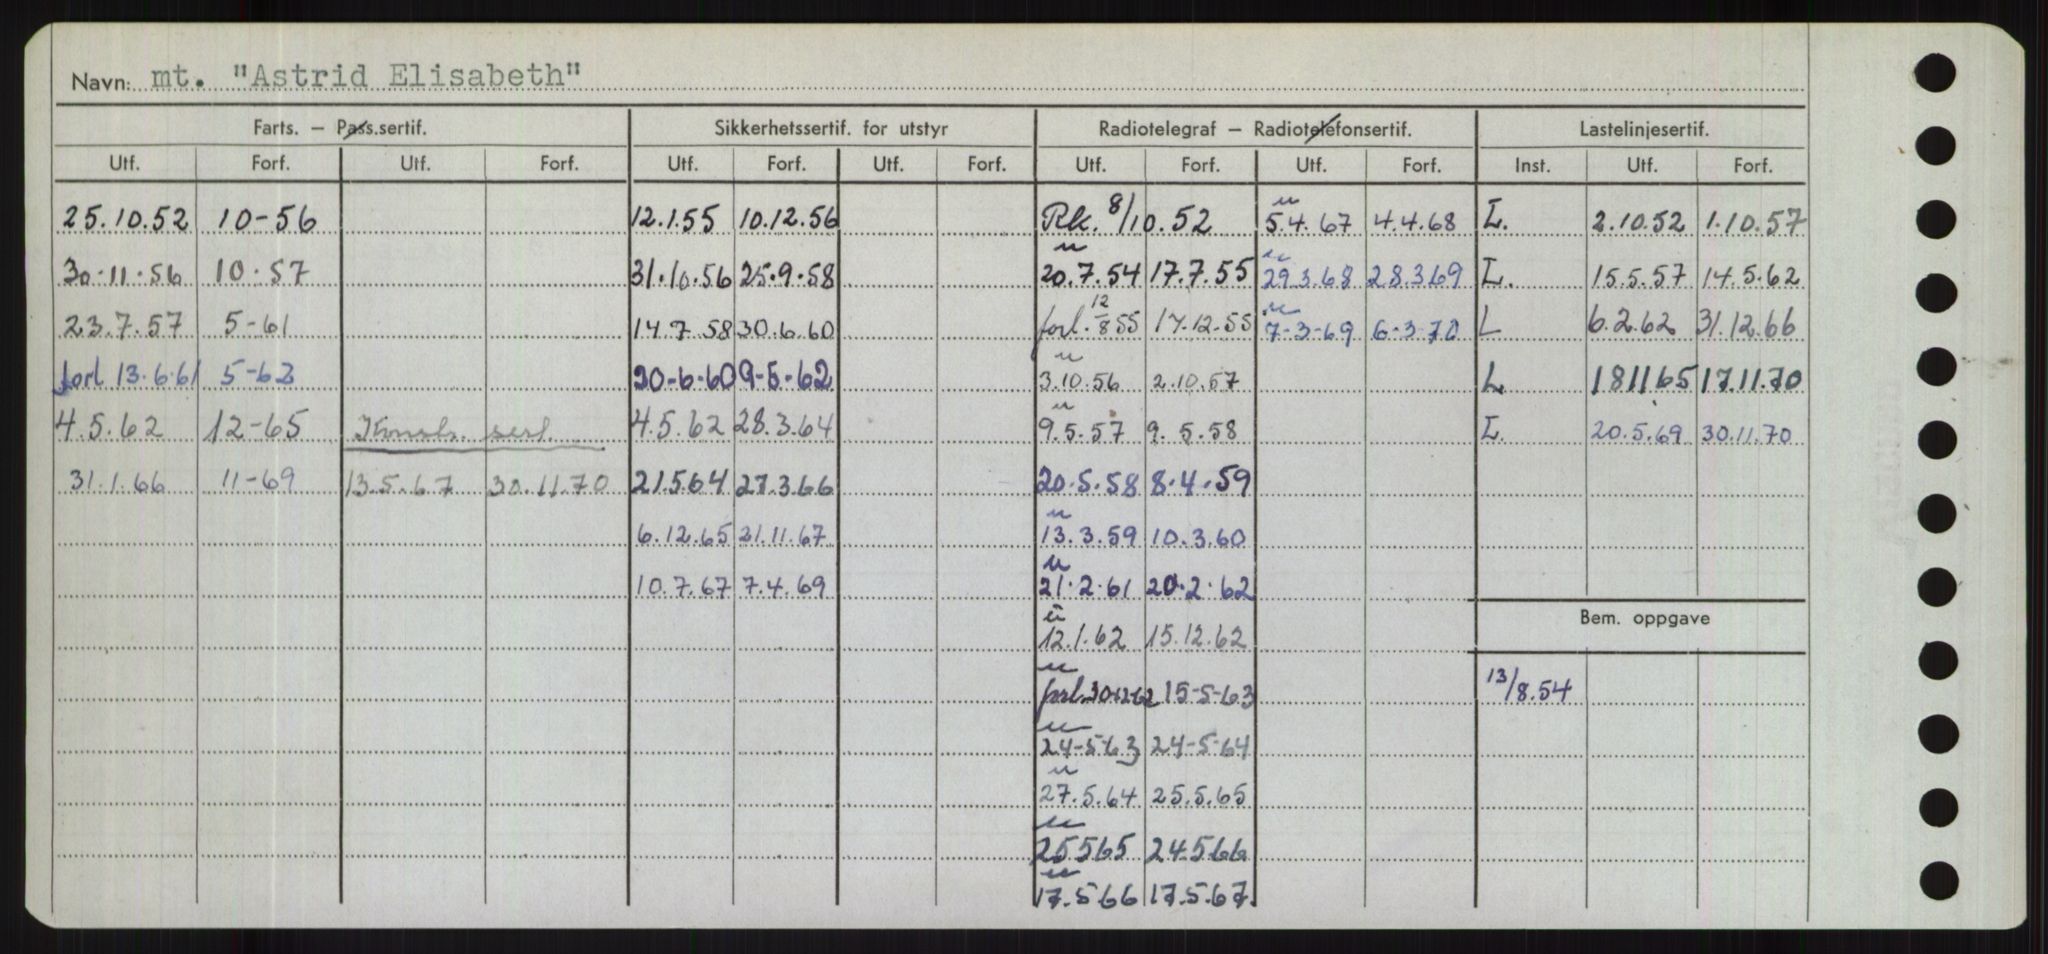 Navn: mt. "Astrid Elisabeth"
Farts. – Pass.sertif. Sikkerhetssertif. for utstyr Radiotelegraf – Radiotelefonsertif. Lastelinjesertif.
Utf. Forf. Utf. Forf. Utf. Forf. Utf. Forf. Utf. Forf. Utf. Forf. Inst. Utf. Forf.
25.10.52 10-56 12.1.55 10.12.56 Rk. 8/10.52 u 5.4.67 4.4.68 L. 2.10.52 1.10.57
30.11.56 10.57 31.10.56 25.9.58 u 20.7.54 17.7.55 u 29.3.68 28.3.69 L. 15.5.57 14.5.62
23.7.57 5-61 14.7.58 30.6.60 forl. 12/8 55 17.12.55 u 7-3-69 6-3-70 L 6.2.62 31.12.66
forl 13.6.61 5-62 30-6-60 9-5-62 u 3.10.56 2.10.57 L. 181165 17.11.70
4.5.62 12-65 Konstr. sert. 4.5.62 28.3.64 u 9.5.57 9.5.58 L. 20.5.69 30.11.70
31.1.66 11-69 13.5.67 30.11.70 21564 27.3.66 20.5.58 8.4.59
6.12.65 21.11.67 u 13.3.59 10.3.60
10.7.67 7.4.69 u 21.2.61 20.2.62
Bem. oppgave
u 12.1.62 15.12.62
u forl. 30-12-62 15-5-63 13/8.54
u 24-5-63 24-5-64
u 27.5.64 25.5.65
u 25565 24.5.66
u 17.5.66 17.5.67.